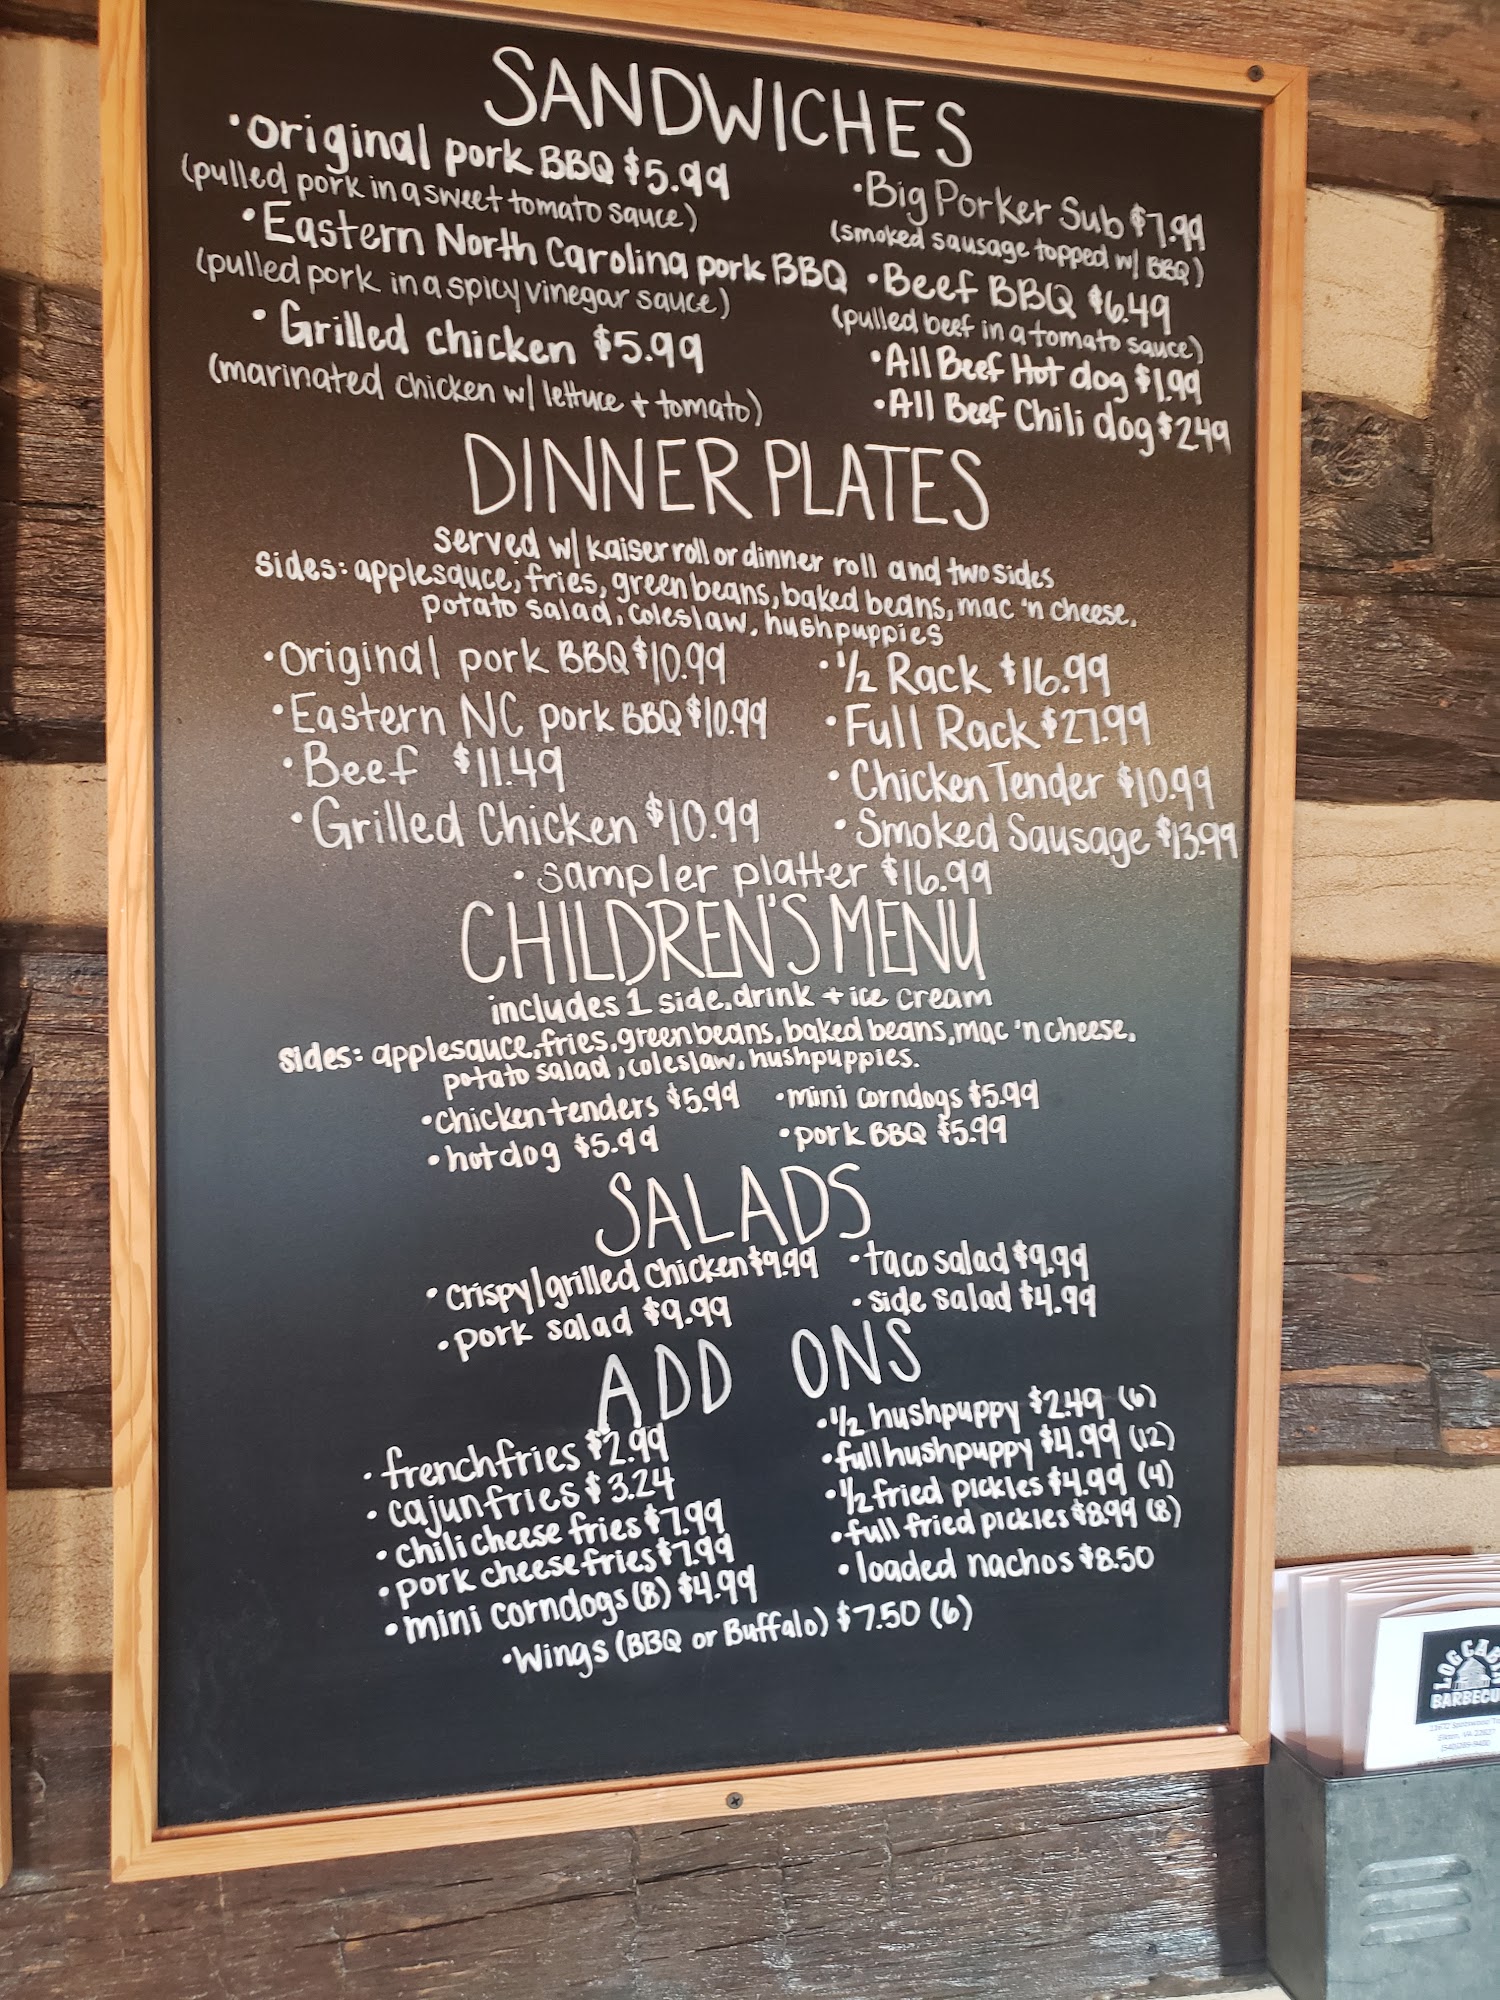 SANDWICHES
•original pork BBQ $5.99
(pulled pork in a sweet tomato sauce)
•Eastern North Carolina pork BBQ
(pulled pork in a spicy vinegar sauce)
•Grilled chicken $5.99
(marinated chicken w/ lettuce + tomato)
•Big Porker Sub $7.99
(smoked sausage topped w/ BBQ)
•Beef BBQ $6.49
(pulled beef in a tomato sauce)
•All Beef Hot dog $1.99
•All Beef Chili dog $2.49
DINNER PLATES
served w/ kaiser roll or dinner roll and two sides
sides: applesauce, fries, green beans, baked beans, mac 'n cheese,
potato salad, coleslaw, hushpuppies
•Original pork BBQ $10.99
•Eastern NC pork BBQ $10.99
•Beef $11.49
•Grilled Chicken $10.99
•1/2 Rack $16.99
•Full Rack $27.99
•Chicken Tender $10.99
•Smoked Sausage $13.99
•sampler platter $16.99
CHILDREN'S MENU
includes 1 side, drink + ice cream
sides: applesauce, fries, green beans, baked beans, mac 'n cheese,
potato salad, coleslaw, hushpuppies.
•chicken tenders $5.99
•hotdog $5.99
•mini corndogs $5.99
•pork BBQ $5.99
SALADS
•crispy/grilled chicken $9.99
•pork salad $9.99
•taco salad $9.99
•side salad $4.99
ADD ONS
•french fries $2.99
•cajun fries $3.24
•chili cheese fries $7.99
•pork cheese fries $7.99
•mini corndogs (8) $4.99
•1/2 hushpuppy $2.49 (6)
•full hushpuppy $4.99 (12)
•1/2 fried pickles $4.99 (4)
•full fried pickles $8.99 (8)
•loaded nachos $8.50
•Wings (BBQ or Buffalo) $7.50 (6)
LOG CAB
BARBECU